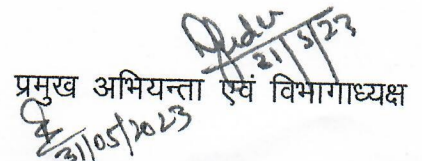 31/5/23
प्रमुख अभियन्ता एवं विभागाध्यक्ष
31/05/2023